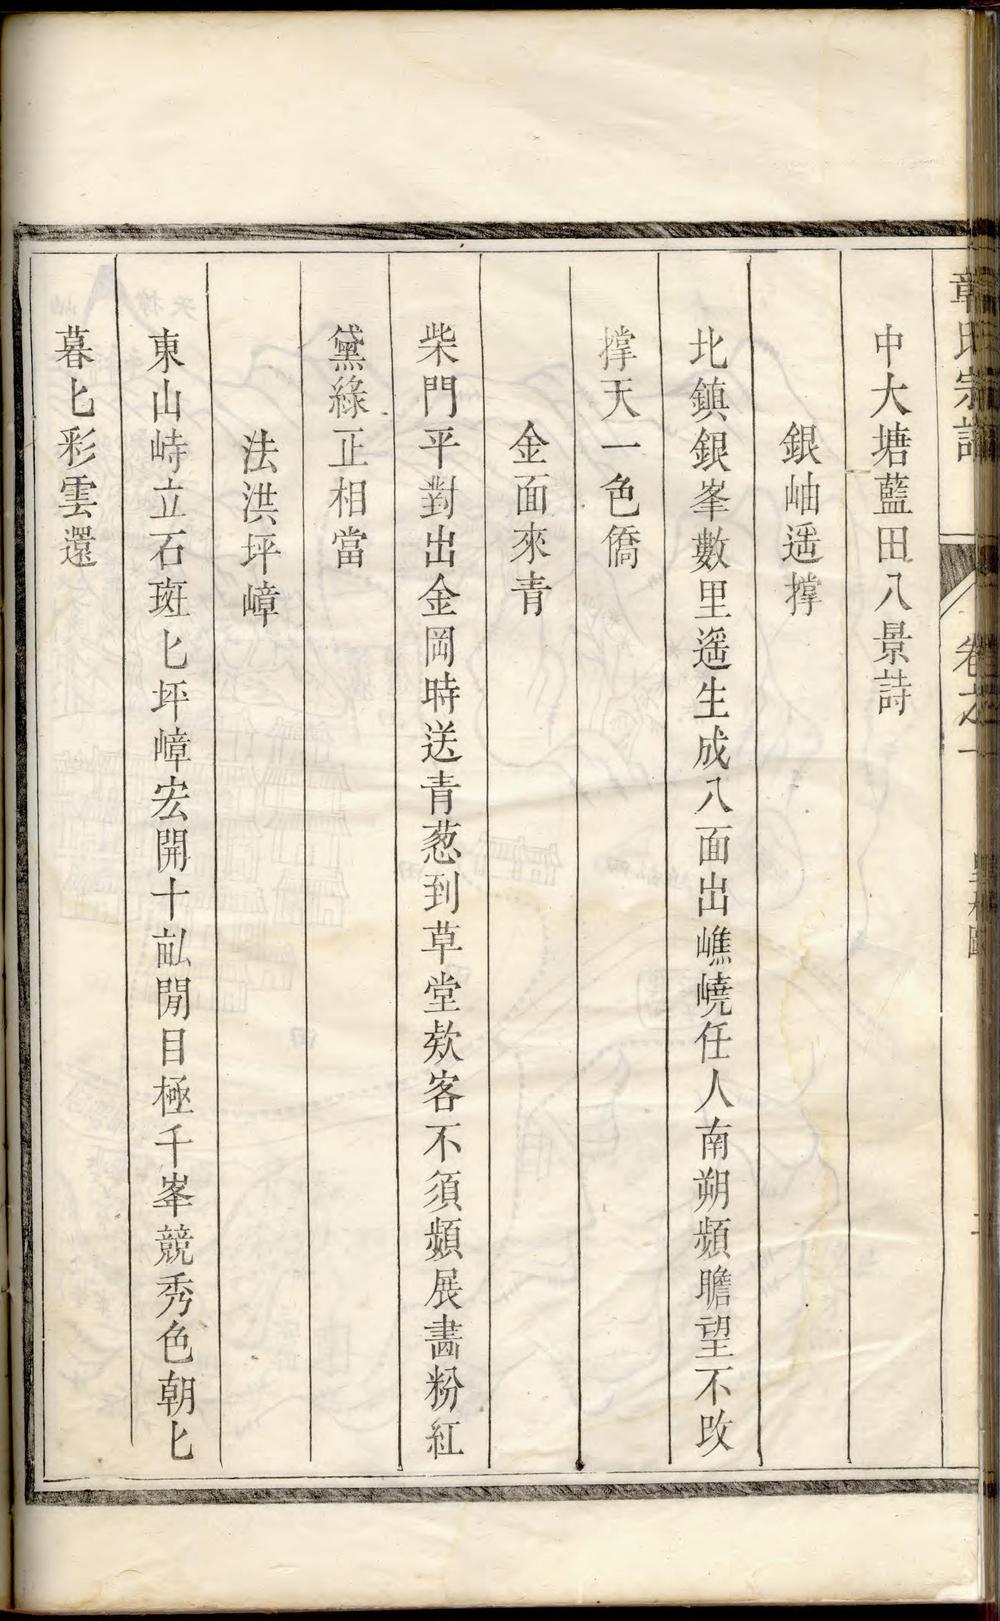 章氏宗譜 卷之一 里社圖
中大塘藍田八景詩
銀岫遥撑
北鎮銀峯數里遥生成八面出嶕嶢任人南朔頻瞻望不改
撑天一色僑
金面來青
柴門平對出金岡時送青葱到草堂欵客不須頻展畵粉紅
黛綠正相當
法洪坪嶂
東山峙立石斑匕坪嶂宏開十畝閒目極千峯競秀色朝匕
暮匕彩雲還